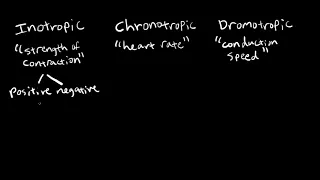 Inotropic Chronotropic Dromotropic
"strength of "heart rate" "conduction
contraction" speed"
positive negative